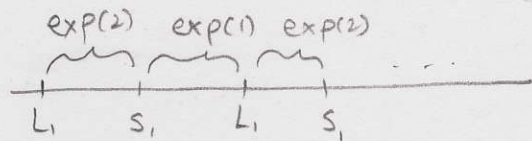 exp(2) exp(1) exp(2)
. . . .
L₁ S₁ L₁ S₁